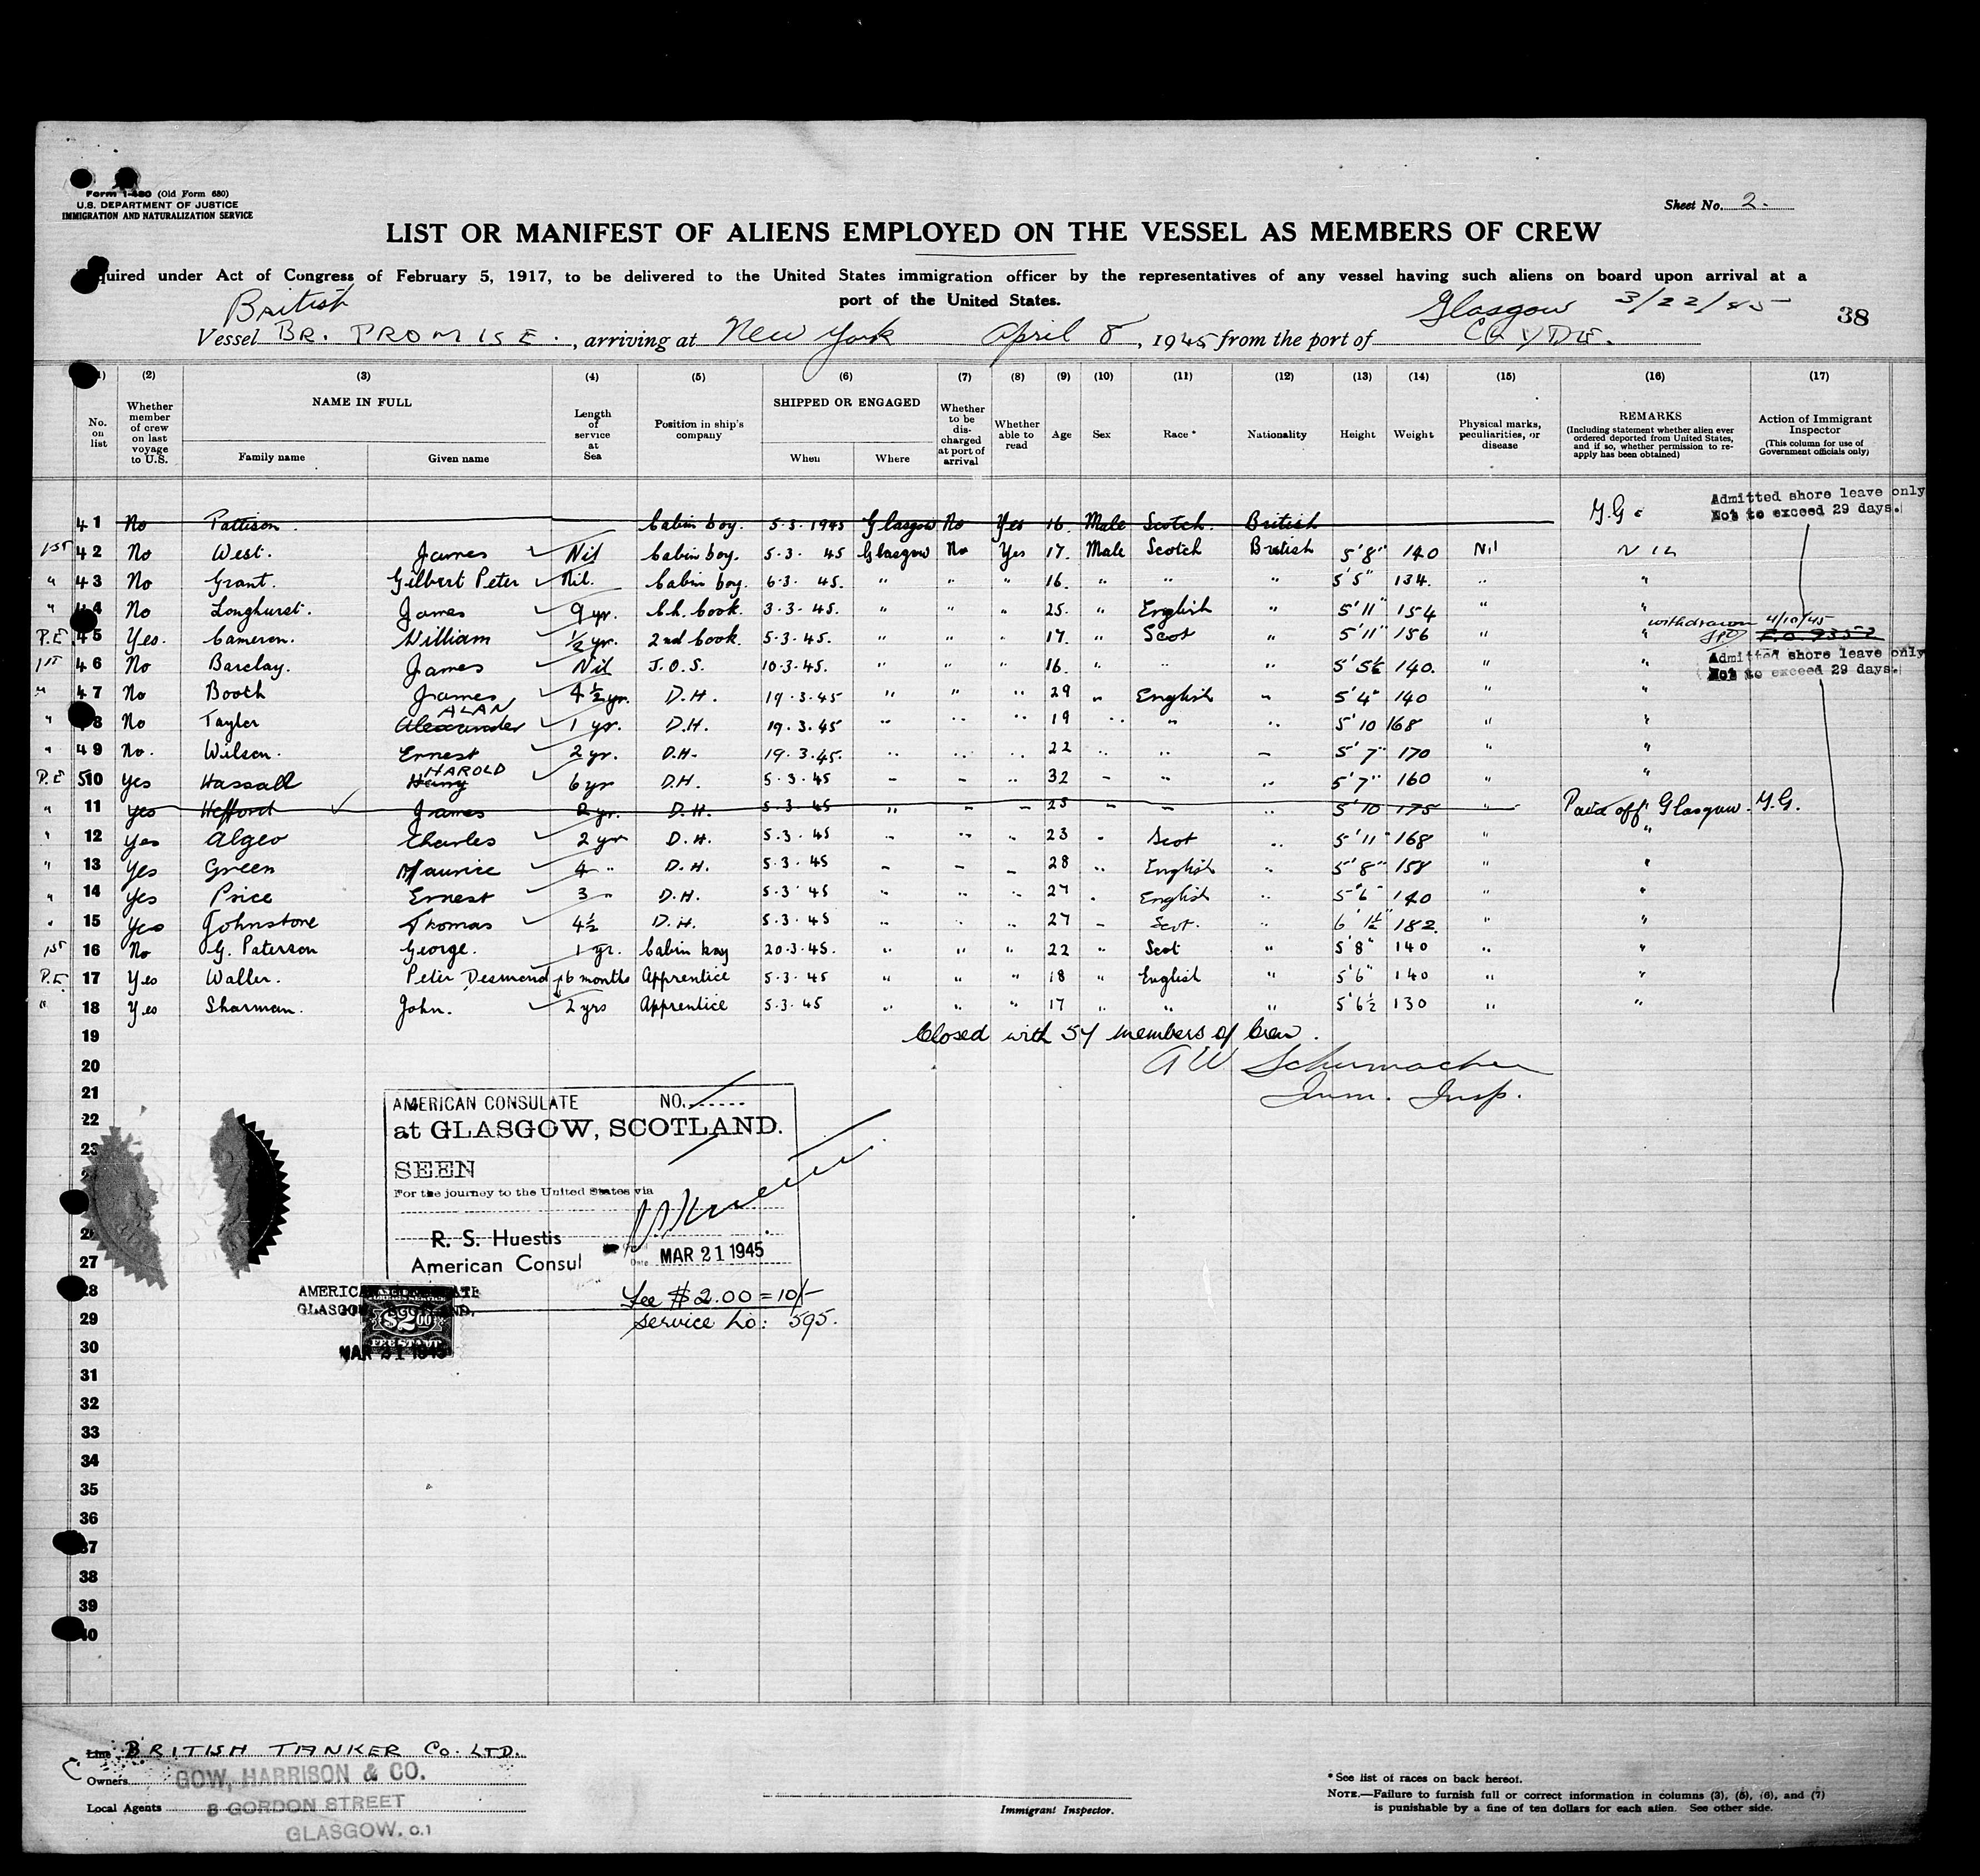 Form I-480 (Old Form 680)
U.S. DEPARTMENT OF JUSTICE
IMMIGRATION AND NATURALIZATION SERVICE
Sheet No. 2.
LIST OR MANIFEST OF ALIENS EMPLOYED ON THE VESSEL AS MEMBERS OF CREW
quired under Act of Congress of February 5, 1917, to be delivered to the United States immigration officer by the representatives of any vessel having such aliens on board upon arrival at a
port of the United States.
British Glasgow 3/22/45 38
Vessel BR. PROMISE., arriving at New York April 8, 1945 from the port of CLYDE.
(1) (2) (3) (4) (5) (6) (7) (8) (9) (10) (11) (12) (13) (14) (15) (16) (17)
No. on list Whether member of crew on last voyage to U.S. NAME IN FULL Family name Given name Length of service at Sea Position in ship's company SHIPPED OR ENGAGED When Where Whether to be discharged at port of arrival Whether able to read Age Sex Race * Nationality Height Weight Physical marks, peculiarities, or disease REMARKS (Including statement whether alien ever ordered deported from United States, and if so, whether permission to re-apply has been obtained) Action of Immigrant Inspector (This column for use of Government officials only)
Admitted shore leave only
Not to exceed 29 days.
41 No Pattison. Cabin boy. 5.3.1945 Glasgow No Yes 16. Male Scotch. British
1st 42 No West. James Nil Cabin boy. 5.3. 45 Glasgow No Yes 17. Male Scotch British 5'8" 140 Nil Nil
" 43 No Grant. Gilbert Peter Nil. Cabin boy. 6.3. 45. " " " 16. " " " 5'5" 134. " "
" 44 No Longhurst. James 9 yr. Ch. Cook. 3.3.45. " " " 25. " English " 5'11" 154 " "
withdrawn 4/10/45
P.E 45 Yes. Cameron. William ½ yr. 2nd Cook. 5.3.45. " " " 17. " Scot " 5'11" 156 "
1st 46 No Barclay. James Nil J.O.S. 10.3.45. " " " 16. " " " 5'5½ 140. " "
Admitted shore leave only
Not to exceed 29 days.
" 47 No Booth James 4½ yr. D.H. 19.3.45 " " " 29 " English " 5'4" 140 " "
ALAN
" 48 No Tayler Alexander 1 yr. D.H. 19.3.45 " " " 19 " " " 5'10 168 " "
" 49 No. Wilson. Ernest 2 yr. D.H. 19.3.45. " " " 22 " " " 5'7" 170 " "
HAROLD
P.E 510 Yes Hassall Harry 6 yr D.H. 5.3.45 " " " 32 " " " 5'7" 160 "
" 11 Yes Hefford James 2 yr. D.H. 5.3.45 " " " 25 " " " 5'10 175 " Paid off Glasgow. Y.G.
" 12 Yes Algeo Charles 2 yr D.H. 5.3.45 " " " 23 " Scot " 5'11" 168 " "
" 13 Yes Green Maurice 4 " D.H. 5.3.45 " " " 28 " English " 5'8" 158 " "
" 14 Yes Price Ernest 3 " D.H. 5.3.45 " " " 27 " English " 5'6" 140 " "
" 15 Yes Johnstone Thomas 4½ D.H. 5.3.45 " " " 27 " Scot. " 6'1½" 182. " "
1st 16 No G. Paterson George. 1 yr. Cabin boy 20.3.45. " " " 22 " Scot " 5'8" 140 " "
P.E. 17 Yes Waller. Peter Desmond 6 months Apprentice 5.3.45 " " " 18 " English " 5'6" 140 " "
" 18 Yes Sharman. John. 2 yrs Apprentice 5.3.45 " " " 17 " " " 5'6½ 130 " "
19 Closed with 54 members of Crew.
20 A W Schumacher
21 Imm. Insp.
AMERICAN CONSULATE NO.
22
at GLASGOW, SCOTLAND.
23
SEEN
For the journey to the United States via
R. S. Huestis
Date MAR 21 1945
27 American Consul
28
AMERICAN CONSULATE
GLASGOW, SCOTLAND.
Fee $2.00 = 10/-
29 $2.00
Service No: 595.
FEE STAMP
30
MAR 21 1945
31
32
33
34
35
36
37
38
39
40
Line BRITISH TANKER CO. LTD.
Owners GOW, HARRISON & CO.
Local Agents 8 GORDON STREET
GLASGOW. C.1
Immigrant Inspector.
* See list of races on back hereof.
NOTE.—Failure to furnish full or correct information in columns (3), (5), (6), and (7)
is punishable by a fine of ten dollars for each alien. See other side.